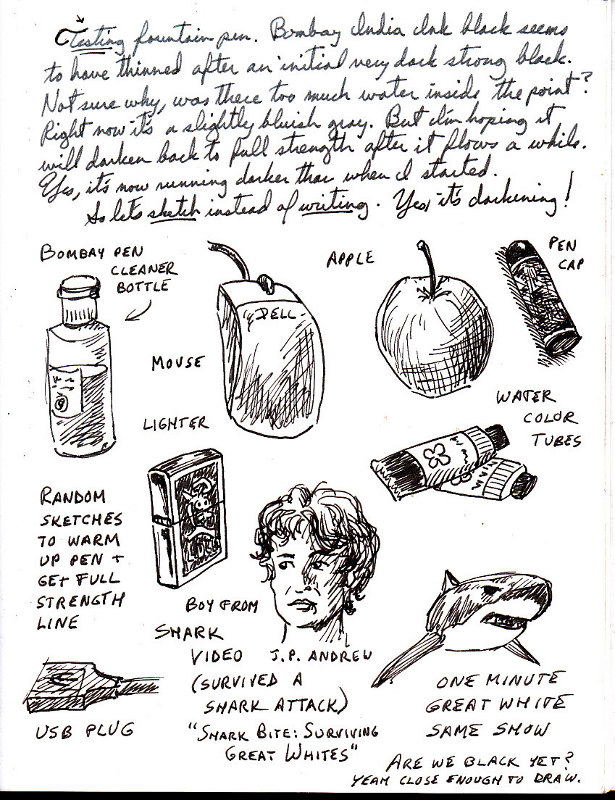 Testing fountain pen. Bombay India Ink black seems
to have thinned after an initial very dark strong black.
Not sure why, was there too much water inside the point?
Right now it's a slightly bluish gray. But I'm hoping it
will darken back to full strength after it flows a while.
Yes, it's now running darker than when I started.
So let's sketch instead of writing. Yes, it's darkening!
BOMBAY PEN
CLEANER
BOTTLE
DELL
APPLE
PEN
CAP
MOUSE
LIGHTER
WATER
COLOR
TUBES
RANDOM
SKETCHES
TO WARM
UP PEN +
GET FULL
STRENGTH
LINE
BOY FROM
SHARK
VIDEO J.P. ANDREW
(SURVIVED A
SHARK ATTACK)
"SHARK BITE: SURVIVING
GREAT WHITES"
USB PLUG
ONE MINUTE
GREAT WHITE
SAME SHOW
ARE WE BLACK YET?
YEAH CLOSE ENOUGH TO DRAW.